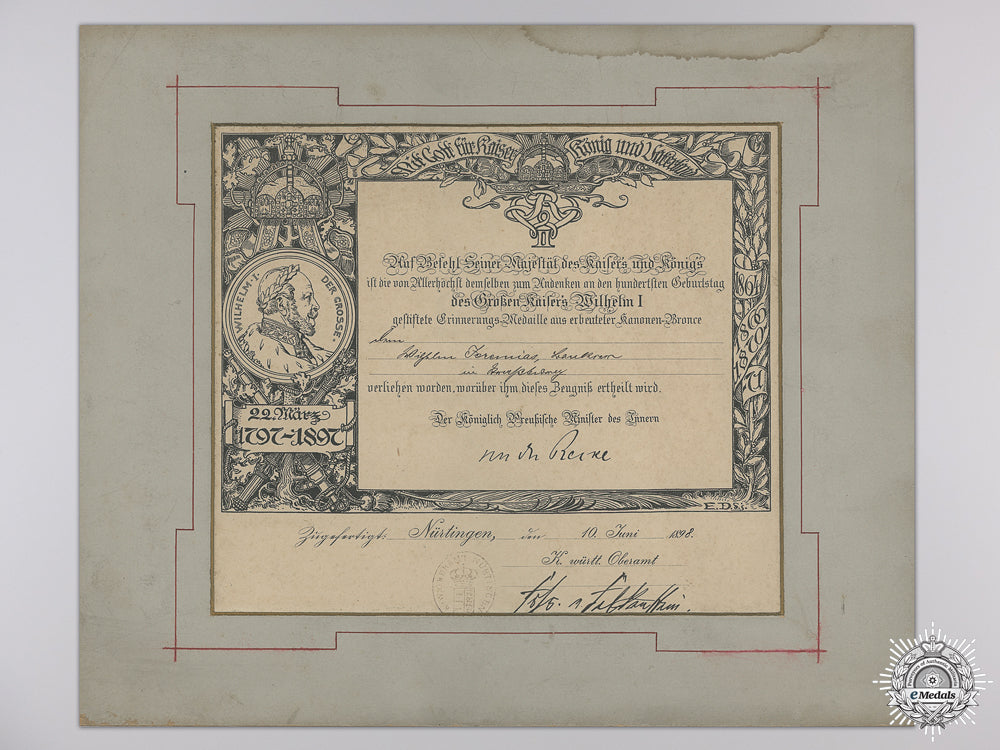 Mit Gott für Kaiser König und Vaterland
WILHELM·I· DER GROSSE·
22. März
1797–1897
W
II
Auf Befehl Seiner Majestät des Kaisers und Königs
ist die von Allerhöchst demselben zum Andenken an den hundertsten Geburtstag
des Großen Kaisers Wilhelm I
gestiftete Erinnerungs-Medaille aus erbeuteter Kanonen-Bronce
dem
Wilhelm Jeremias,
in
verliehen worden, worüber ihm dieses Zeugniß ertheilt wird.
Der Königlich Preußische Minister des Innern
von der Recke
1864
1866
1870
U
71
E.D.
Zugefertigt: Nürtingen, den 10. Juni 1898.
K. württ. Oberamt
eMedals